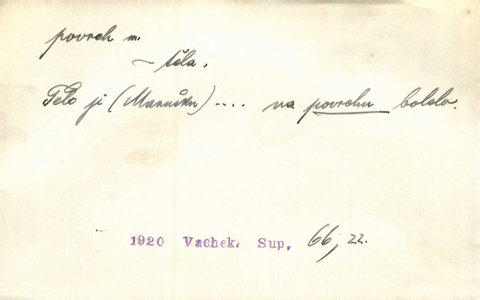 povrch m.
~ těla.
Tělo ji (Marušku) .... na povrchu bolelo.
1920 Vachek. Sup. 66, 22.